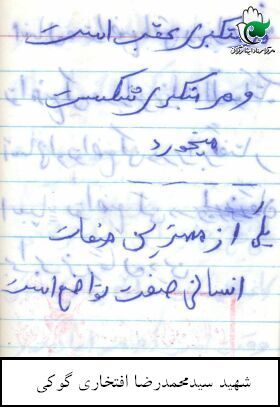 متکبری عقب است
و هر متکبری شکست
میخورد
یکی از مهمترین صفات
انسانی صفت تواضع است
شهید سیدمحمدرضا افتخاری گوکی